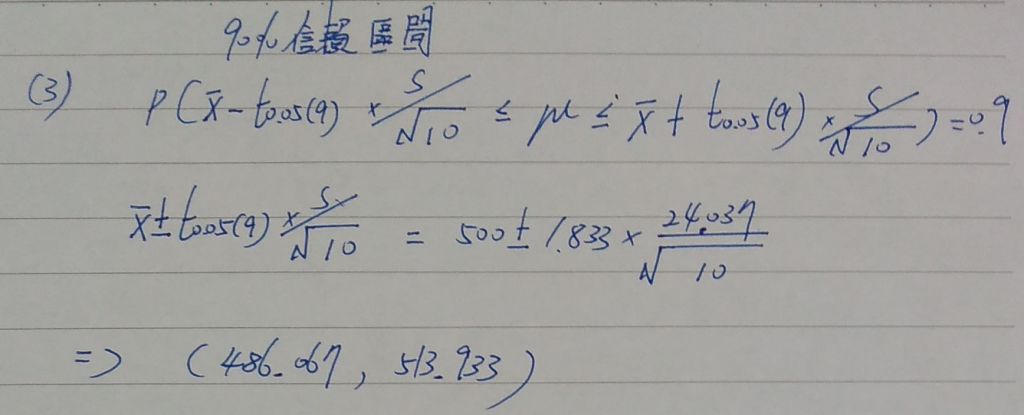 90% 信賴區間
(3) P(x̄ - t0.05(9) × S/√10 ≤ μ ≤ x̄ + t0.05(9) × S/√10) = 0.9
x̄ ± t0.05(9) × S/√10 = 500 ± 1.833 × 24.037/√10
=> (486.067, 513.933)